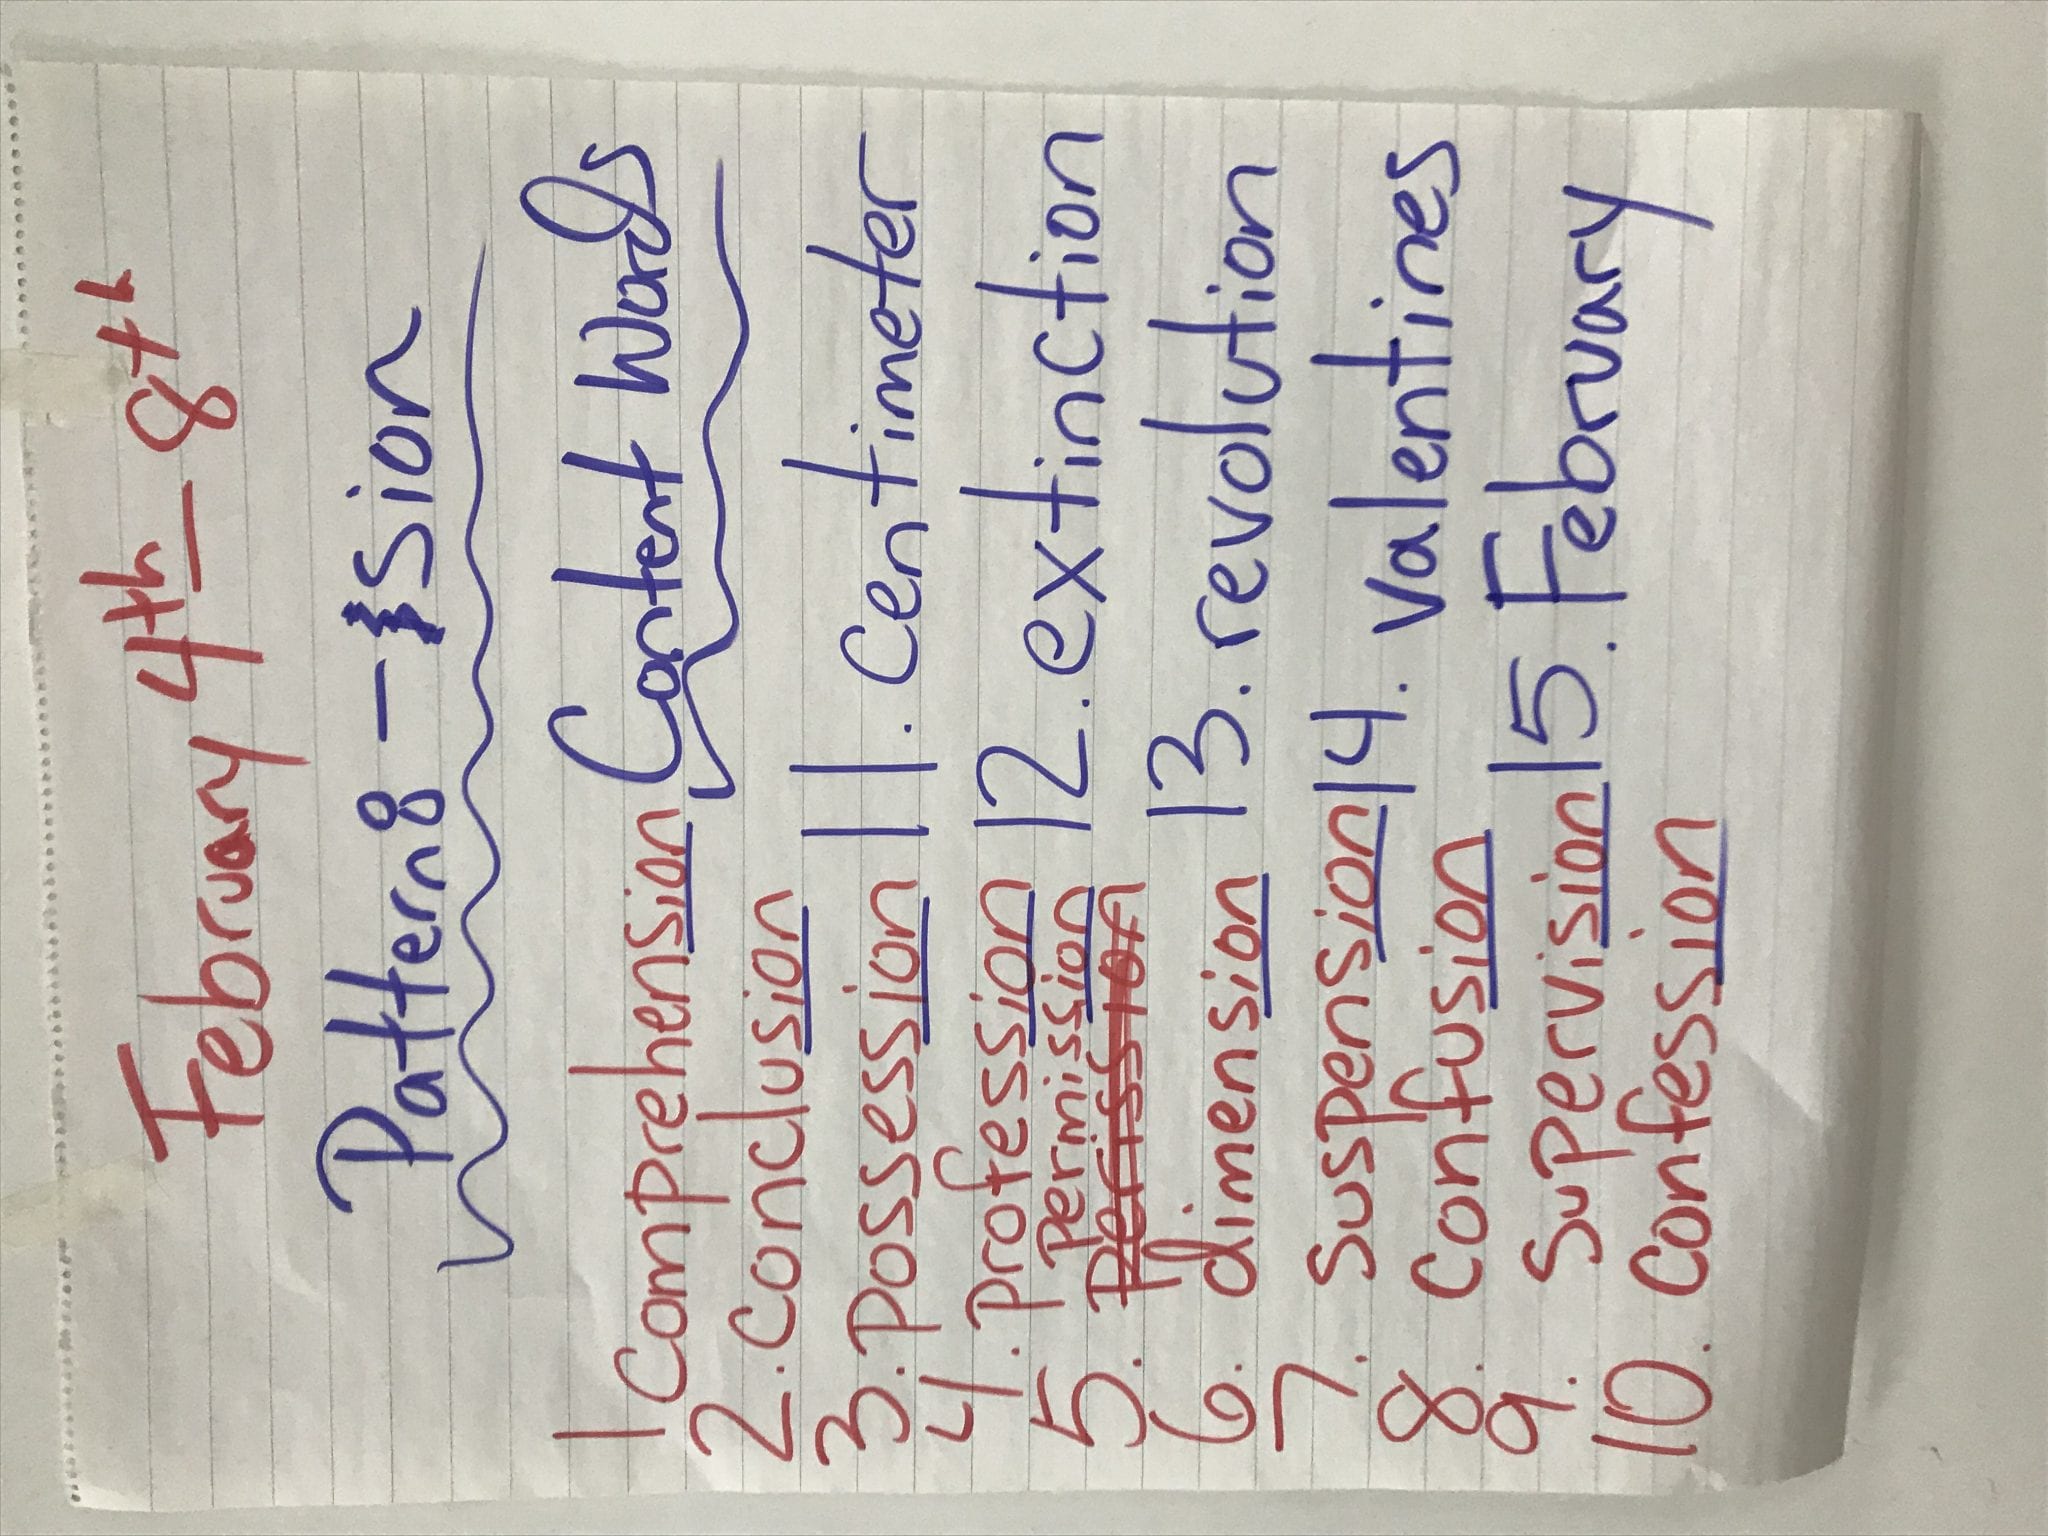 February 4th - 8th
Pattern 8 - sion
Content Words
1 Comprehension
2. Conclusion
3. Possession
4. Profession
5. Permission
6. dimension
7. Suspension
8. Confusion
9. Supervision
10. Confession
11. Centimeter
12. extinction
13. revolution
14. valentines
15. February